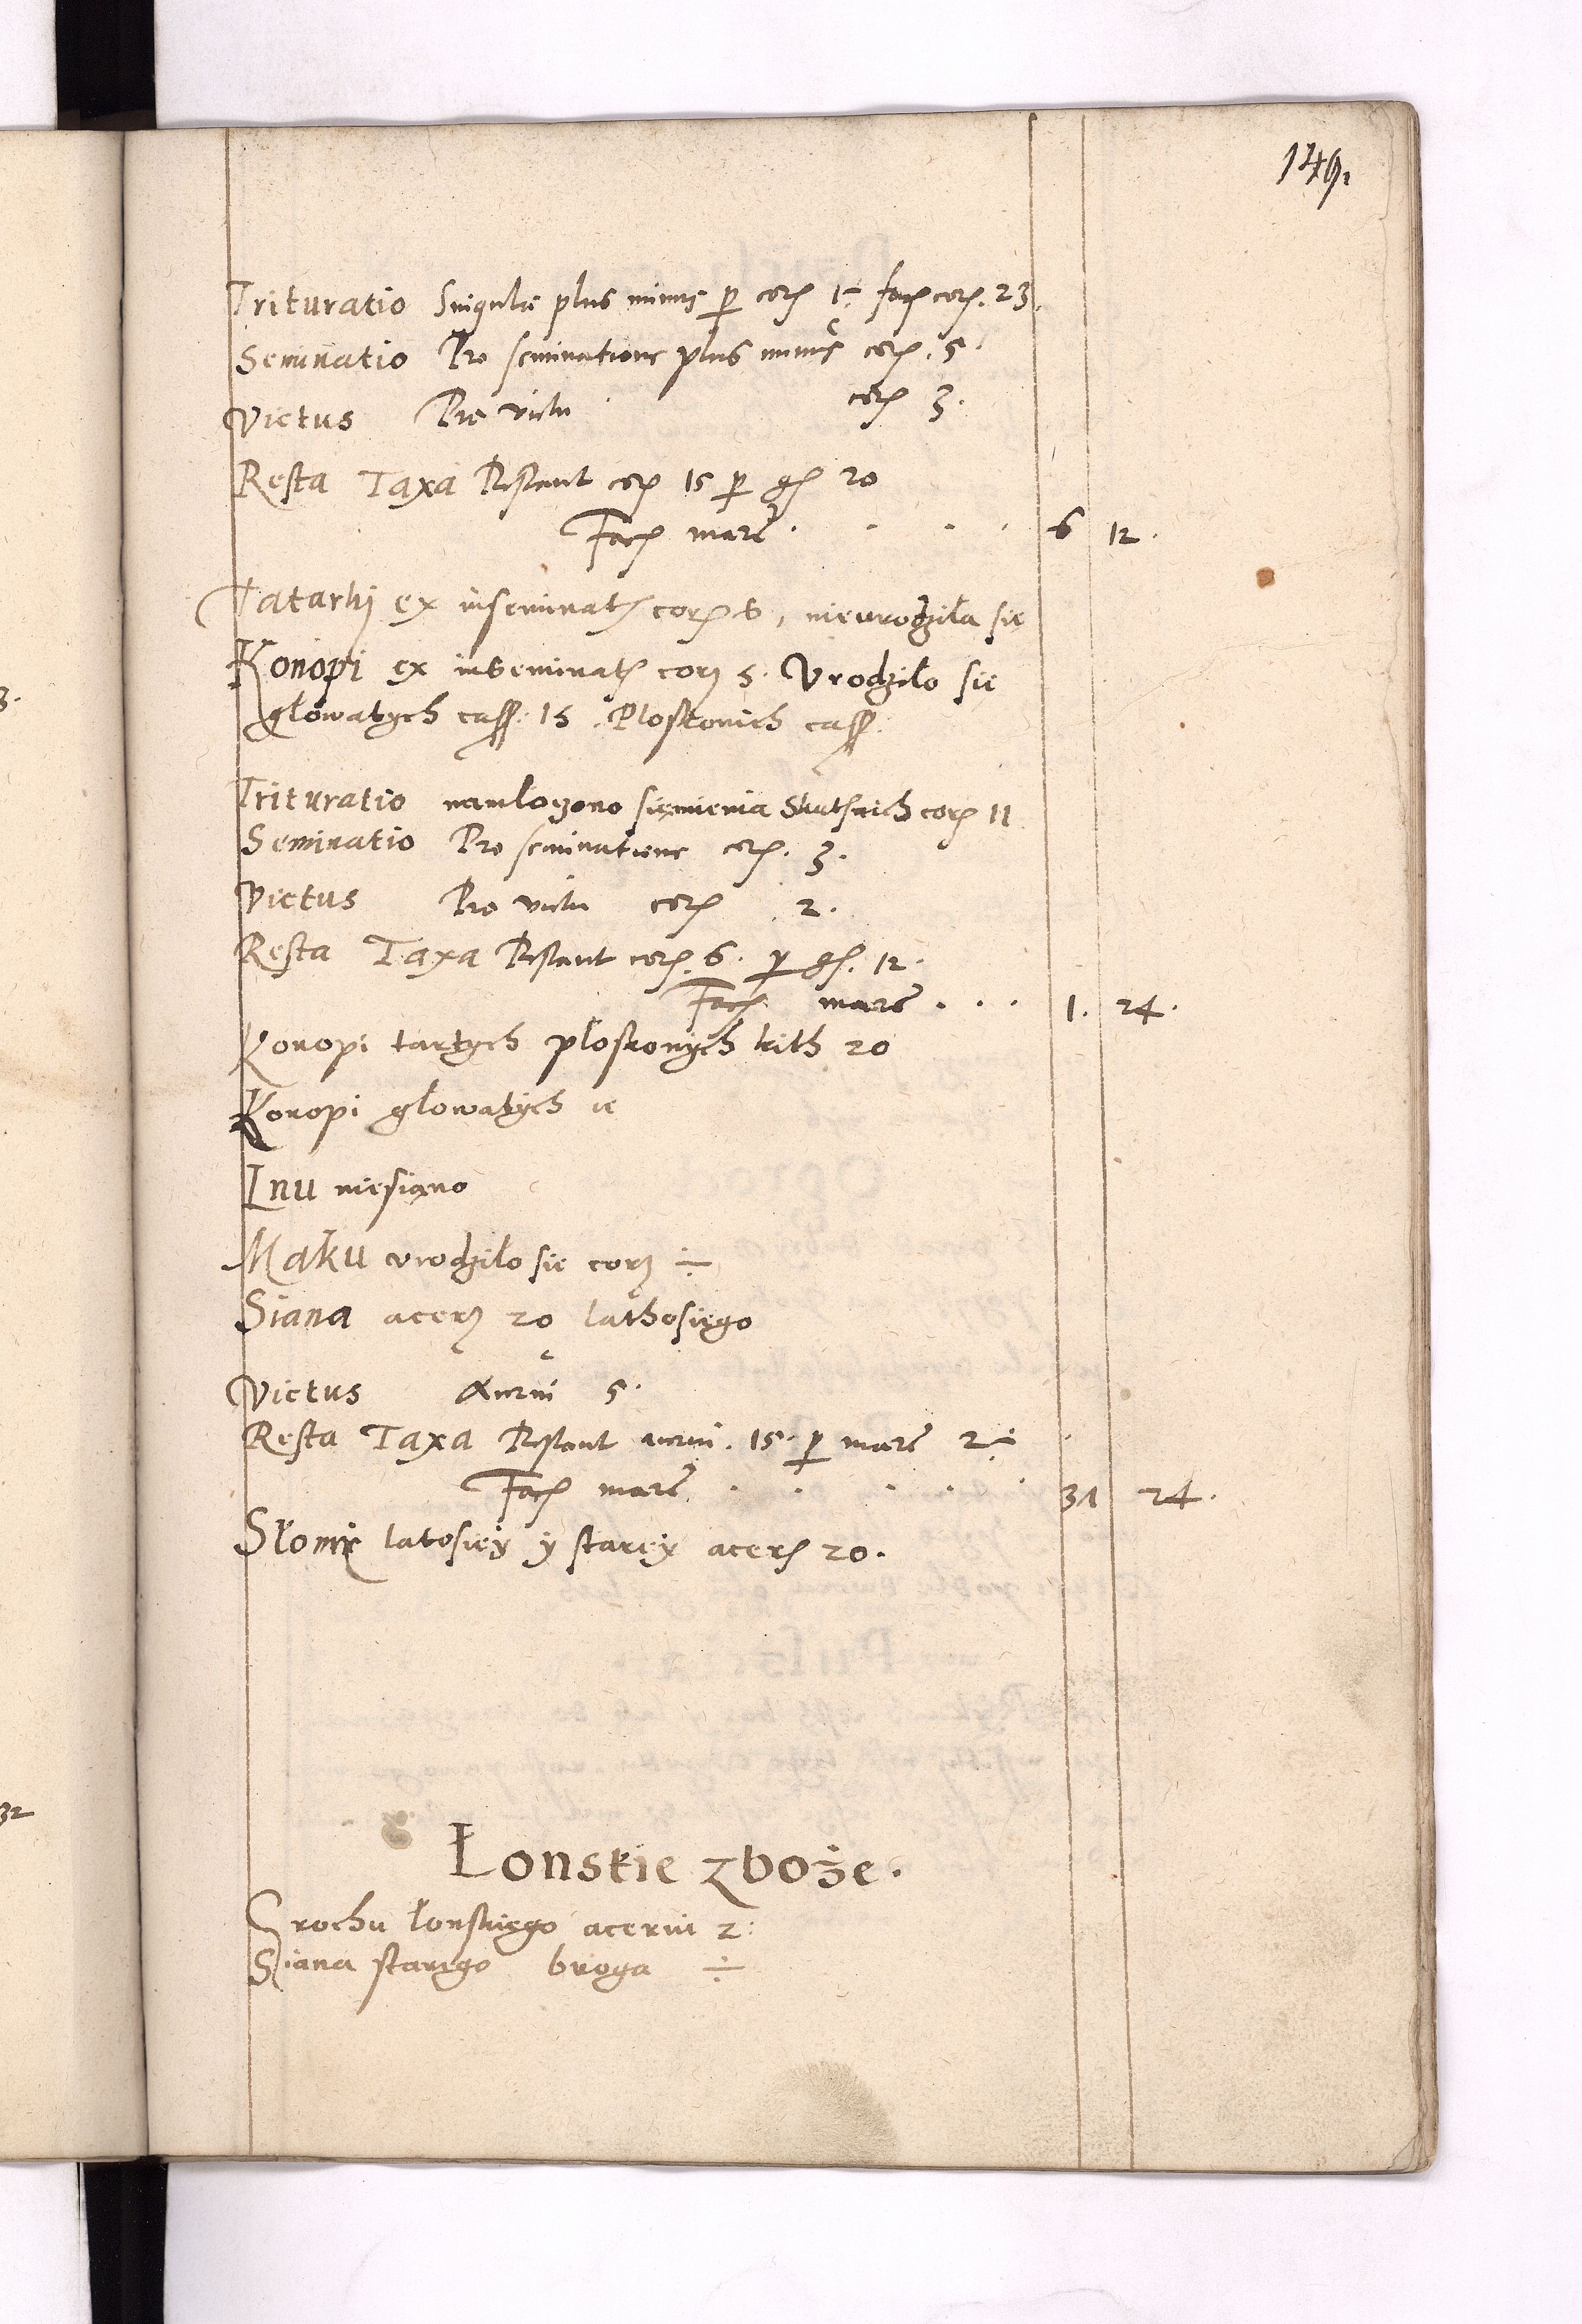 149.
Trituratio Singule plus minus p cor 1÷ fac cor. 23.
Seminatio Pro seminatione plus minus cor. 5.
Victus Pro victu cor 3.
Resta Taxa Restant cor 15 p g 20
Fac marc . . . . 6 12.
Tatarki ex inseminat cor 6, nieurodziła się
Konopi ex inseminat cor 5. Vrodziło się
głowatych cass. 15 . Płoskonich cass.
Trituratio namłoczono siemienia cor 11
Seminatio Pro seminatione cor. 3.
Victus Pro victu cor 2.
Resta Taxa Restant cor. 6. p g. 12.
Fac marc . . . 1. 24.
Konopi tartych płoskonych kith 20
Konopi głowatych
Lnu niesiano
Maku vrodziło sie cor ÷
Siana acer 20 lathosiego
Victus Acervi 5.
Resta Taxa Restant acervi. 15. p marc 2÷
Fac marc . . . . . 31 24.
Słomy latosiey y starey acer 20.
Łonskie zboże.
Grochu łonskiego acervi 2.
Siana starego broga ÷
32
3.